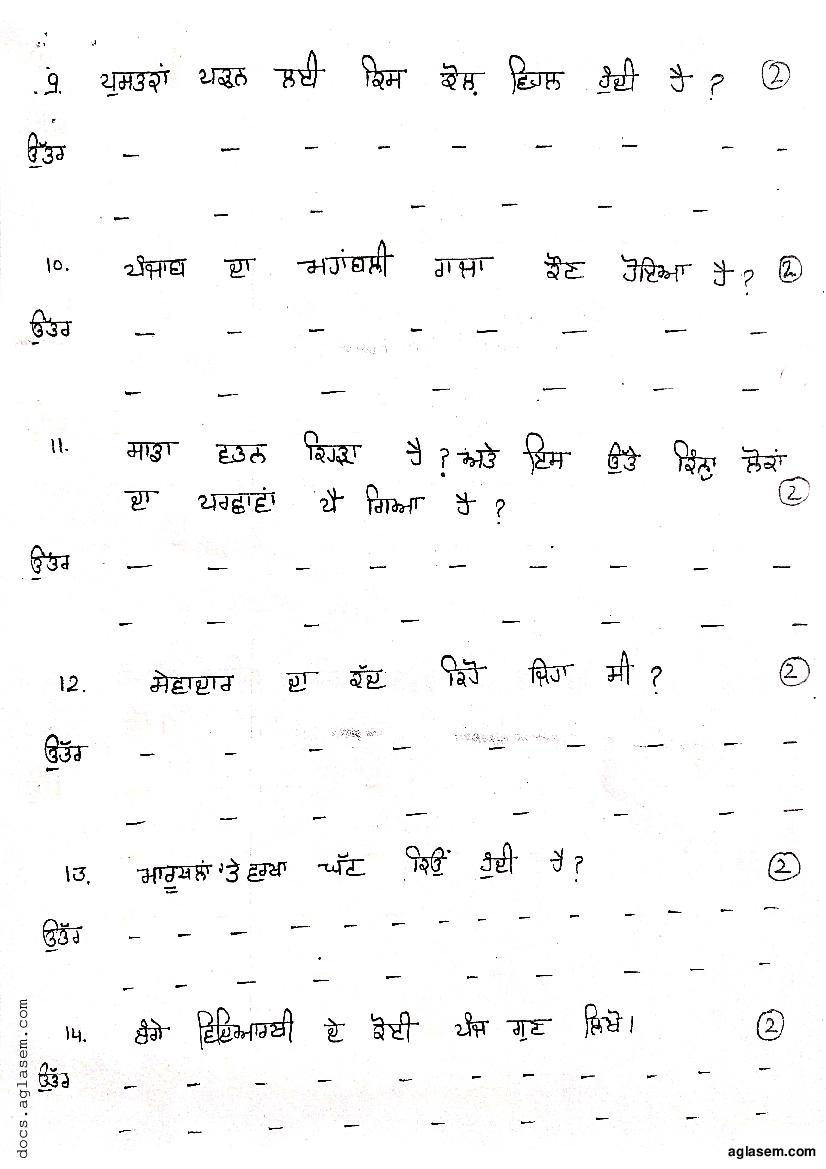 9. ਪੁਸਤਕਾਂ ਪੜ੍ਹਨ ਲਈ ਕਿਸ ਕੋਲ਼ ਵਿਹਲ ਹੁੰਦੀ ਹੈ ? (2)
ਉੱਤਰ — — — — — — — — —
— — — — — — —
10. ਪੰਜਾਬ ਦਾ ਮਹਾਂਬਲੀ ਰਾਜਾ ਕੌਣ ਹੋਇਆ ਹੈ ? (2)
ਉੱਤਰ — — — — — — — —
— — — — — — —
11. ਸਾਡਾ ਵਤਨ ਕਿਹੜਾ ਹੈ ? ਅਤੇ ਇਸ ਉੱਤੇ ਕਿੰਨ੍ਹਾ ਲੋਕਾਂ
ਦਾ ਪਰਛਾਵਾਂ ਪੈ ਗਿਆ ਹੈ ? (2)
ਉੱਤਰ — — — — — — — — —
— — — — — — — —
12. ਸੇਵਾਦਾਰ ਦਾ ਕੱਦ ਕਿਹੋ ਜਿਹਾ ਸੀ ? (2)
ਉੱਤਰ — — — — — — — — —
— — — — — — — —
13. ਮਾਰੂਥਲਾਂ 'ਤੇ ਵਰਖਾ ਘੱਟ ਕਿਉਂ ਹੁੰਦੀ ਹੈ ? (2)
ਉੱਤਰ — — — — — — — — — — — — —
— — — — — — — — — —
14. ਚੰਗੇ ਵਿਦਿਆਰਥੀ ਦੇ ਕੋਈ ਪੰਜ ਗੁਣ ਲਿਖੋ। (2)
ਉੱਤਰ — — — — — — — — — —
— — — — — — — — —
docs.aglasem.com
aglasem.com